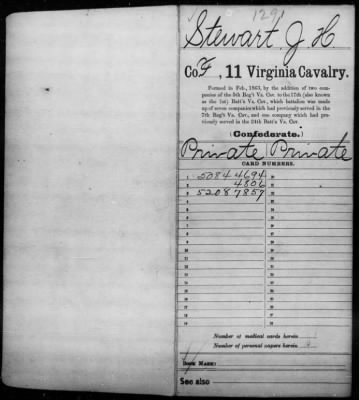 1291
Stewart, J. H.
Co. F, 11 Virginia Cavalry.
Formed in Feb., 1863, by the addition of two com-
panies of the 5th Reg't Va. Cav. to the 17th (also known
as the 1st) Batt'n Va. Cav., which battalion was made
up of seven companies which had previously served in the
7th Reg't Va. Cav., and one company which had pre-
viously served in the 24th Batt'n Va. Cav.
(Confederate.)
Private Private
CARD NUMBERS.
1 50844694
2 4806
3 52087857
4
5
6
7
8
9
10
11
12
13
14
Number of medical cards herein
Number of personal papers herein
BOOK MARK:
See also